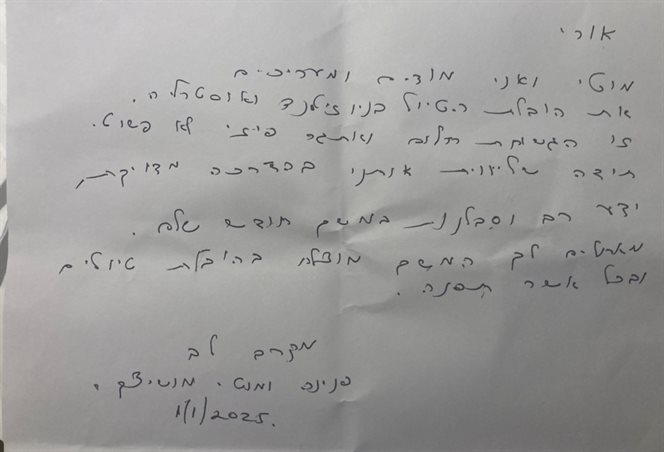 אורי
מוטי ואני מודים ומעריכים
את הובלת הטיול בניו זילנד ואוסטרליה.
זו הגשמת חלום ואתגר פיזי לא פשוט.
תודה שליווית אותנו בהדרכה מדויקת,
ידע רב וסבלנות במשך חודש שלם.
מאחלים לך המשך מוצלח בהובלת טיולים
ובכל אשר תפנה.
מקרב לב
פנינה ומוטי
1/1/2025.